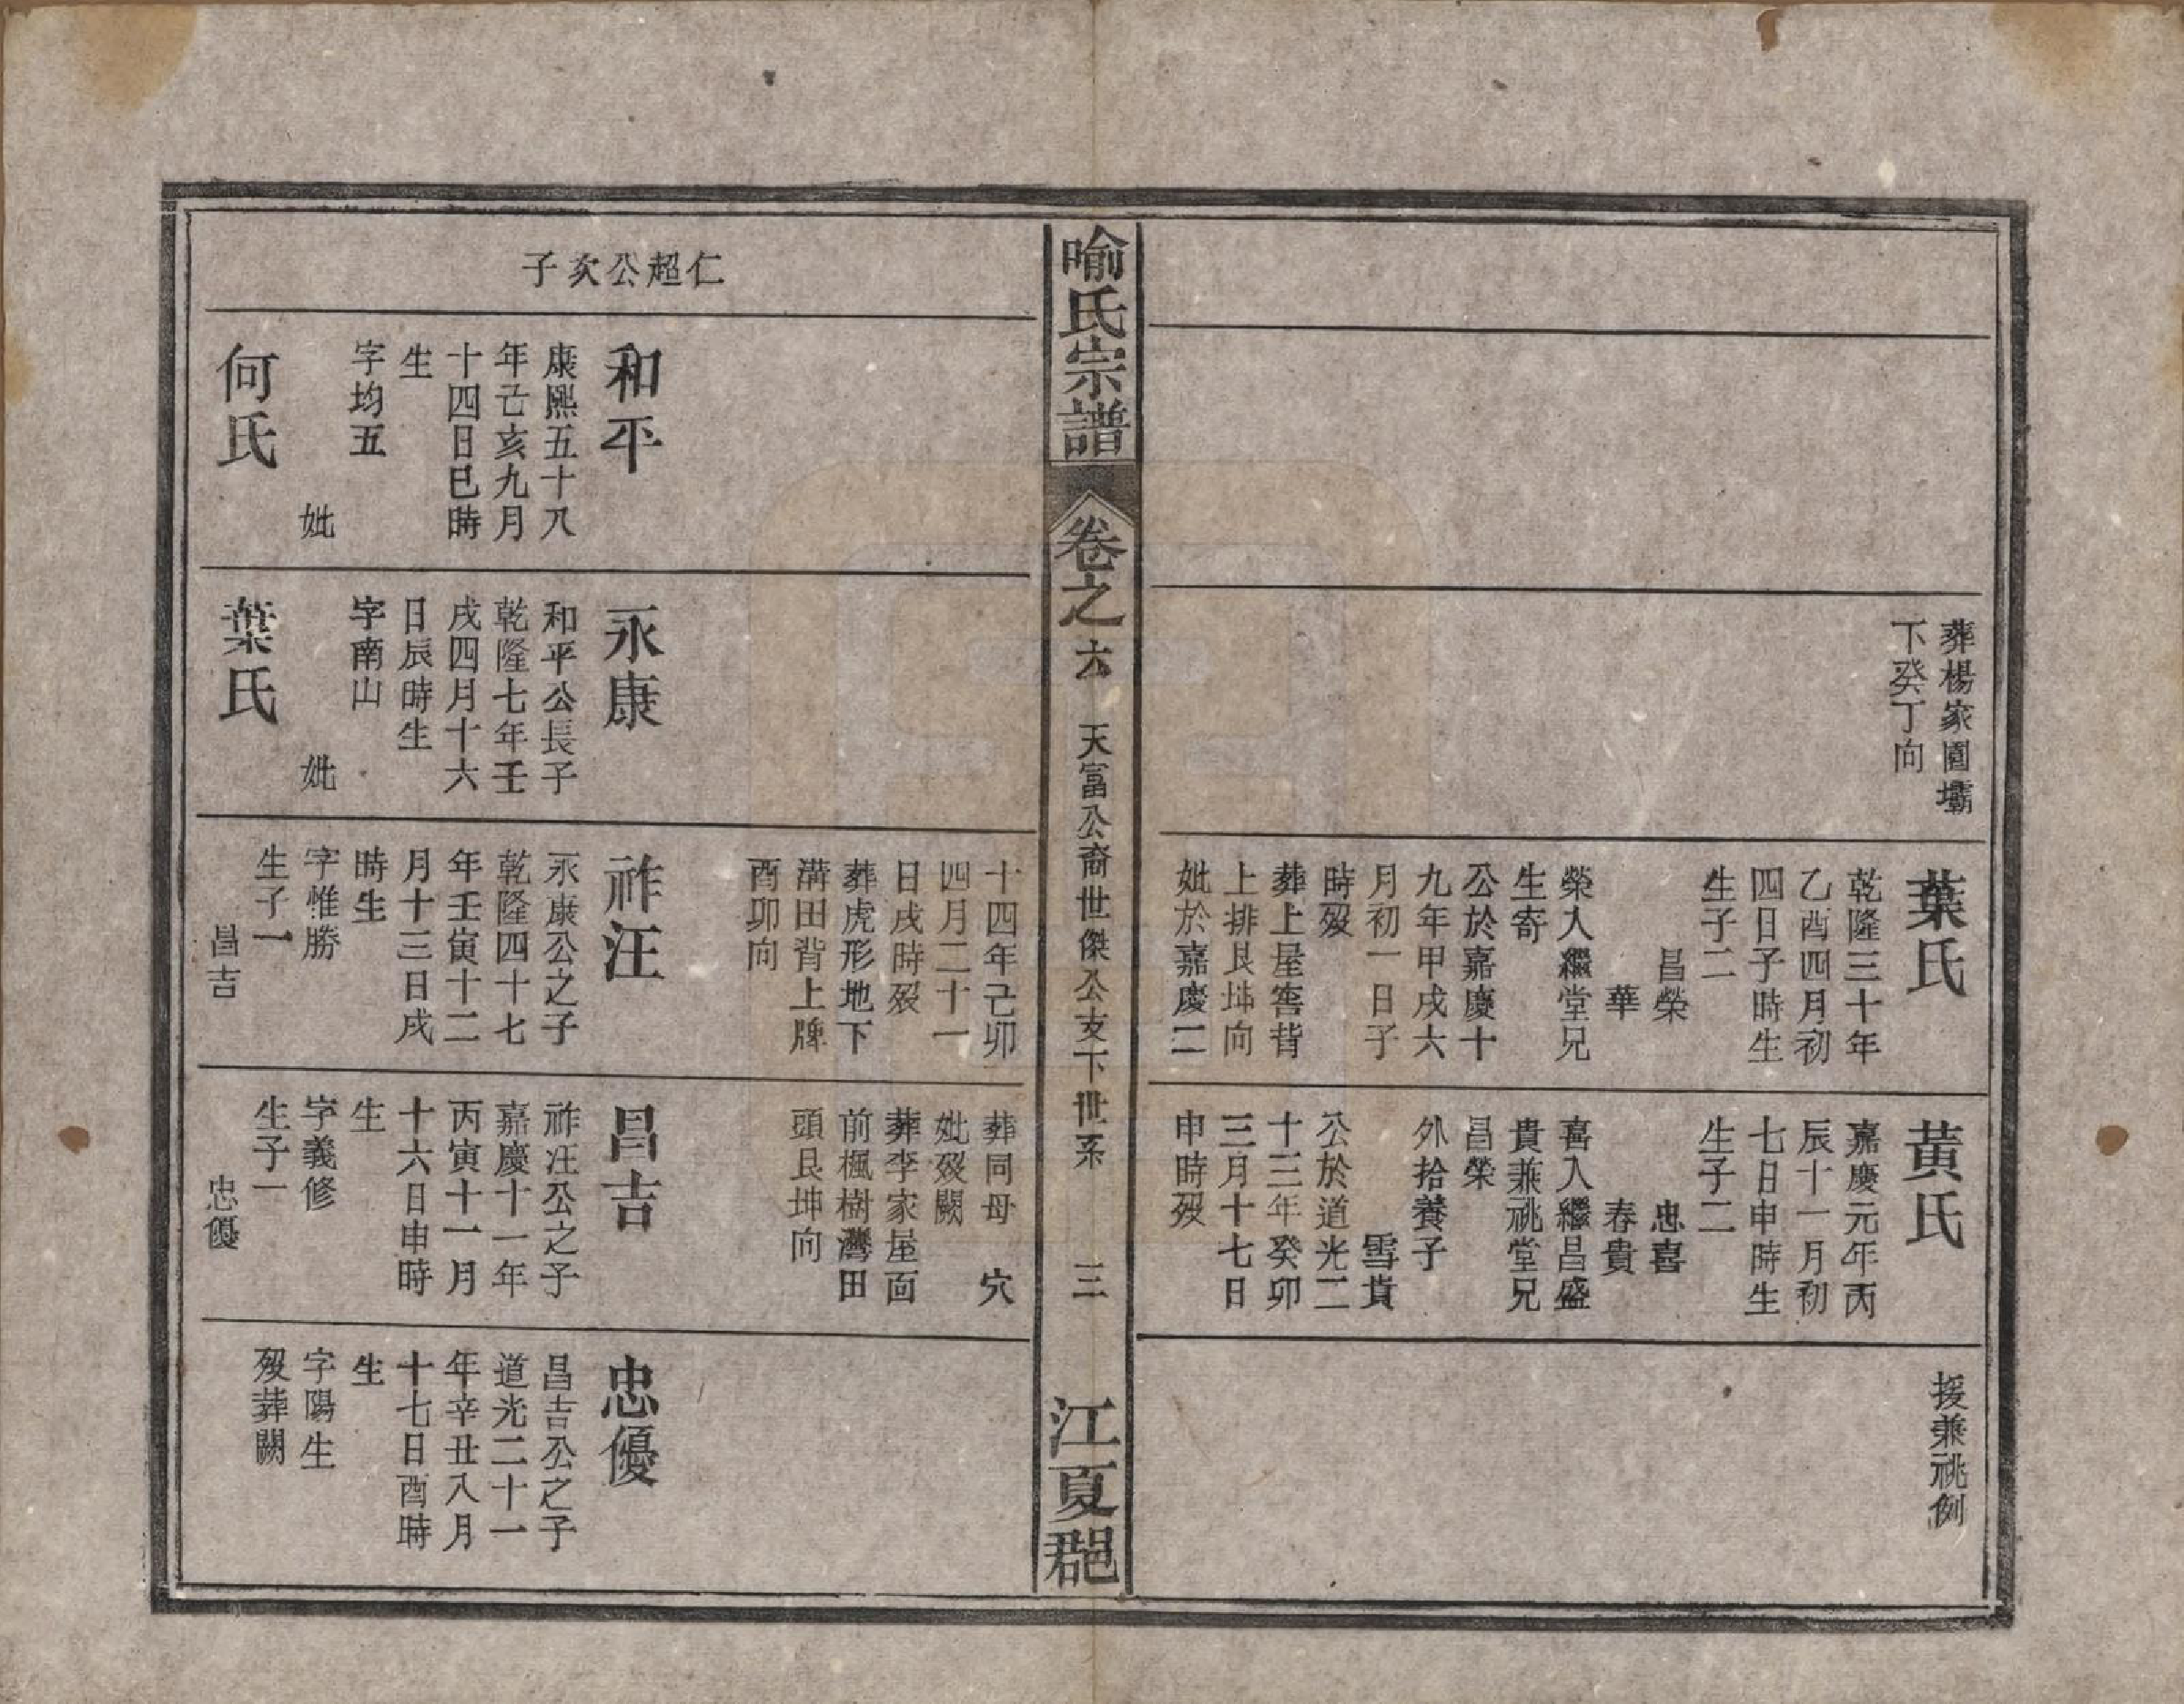 葬楊家園壩
下癸丁向
葉氏
乾隆三十年
乙酉四月初
四日子時生
生子二
昌榮
華
榮入繼堂兄
生寄
公於嘉慶十
九年甲戌六
月初一日子
時歿
葬上屋窖背
上排艮坤向
妣於嘉慶二
黃氏
嘉慶元年丙
辰十一月初
七日申時生
生子二
忠喜
春貴
喜入繼昌盛
貴兼祧堂兄
昌榮
外拾養子
雪貴
公於道光二
十三年癸卯
三月十七日
申時歿
援兼祧例
喻氏宗譜
卷之六
天富公裔世傑公支下世系
三
江夏郡
仁超公次子
和平
康熙五十八
年己亥九月
十四日巳時
生
字均五
妣
何氏
永康
和平公長子
乾隆七年壬
戌四月十六
日辰時生
字南山
妣
葉氏
十四年己卯
四月二十一
日戌時歿
葬虎形地下
溝田背上牌
酉卯向
祚汪
永康公之子
乾隆四十七
年壬寅十二
月十三日戌
時生
字惟勝
生子一
昌吉
葬同母穴
妣歿闕
葬李家屋面
前楓樹灣田
頭艮坤向
昌吉
祚汪公之子
嘉慶十一年
丙寅十一月
十六日申時
生
字義修
生子一
忠優
忠優
昌吉公之子
道光二十一
年辛丑八月
十七日酉時
生
字陽生
歿葬闕